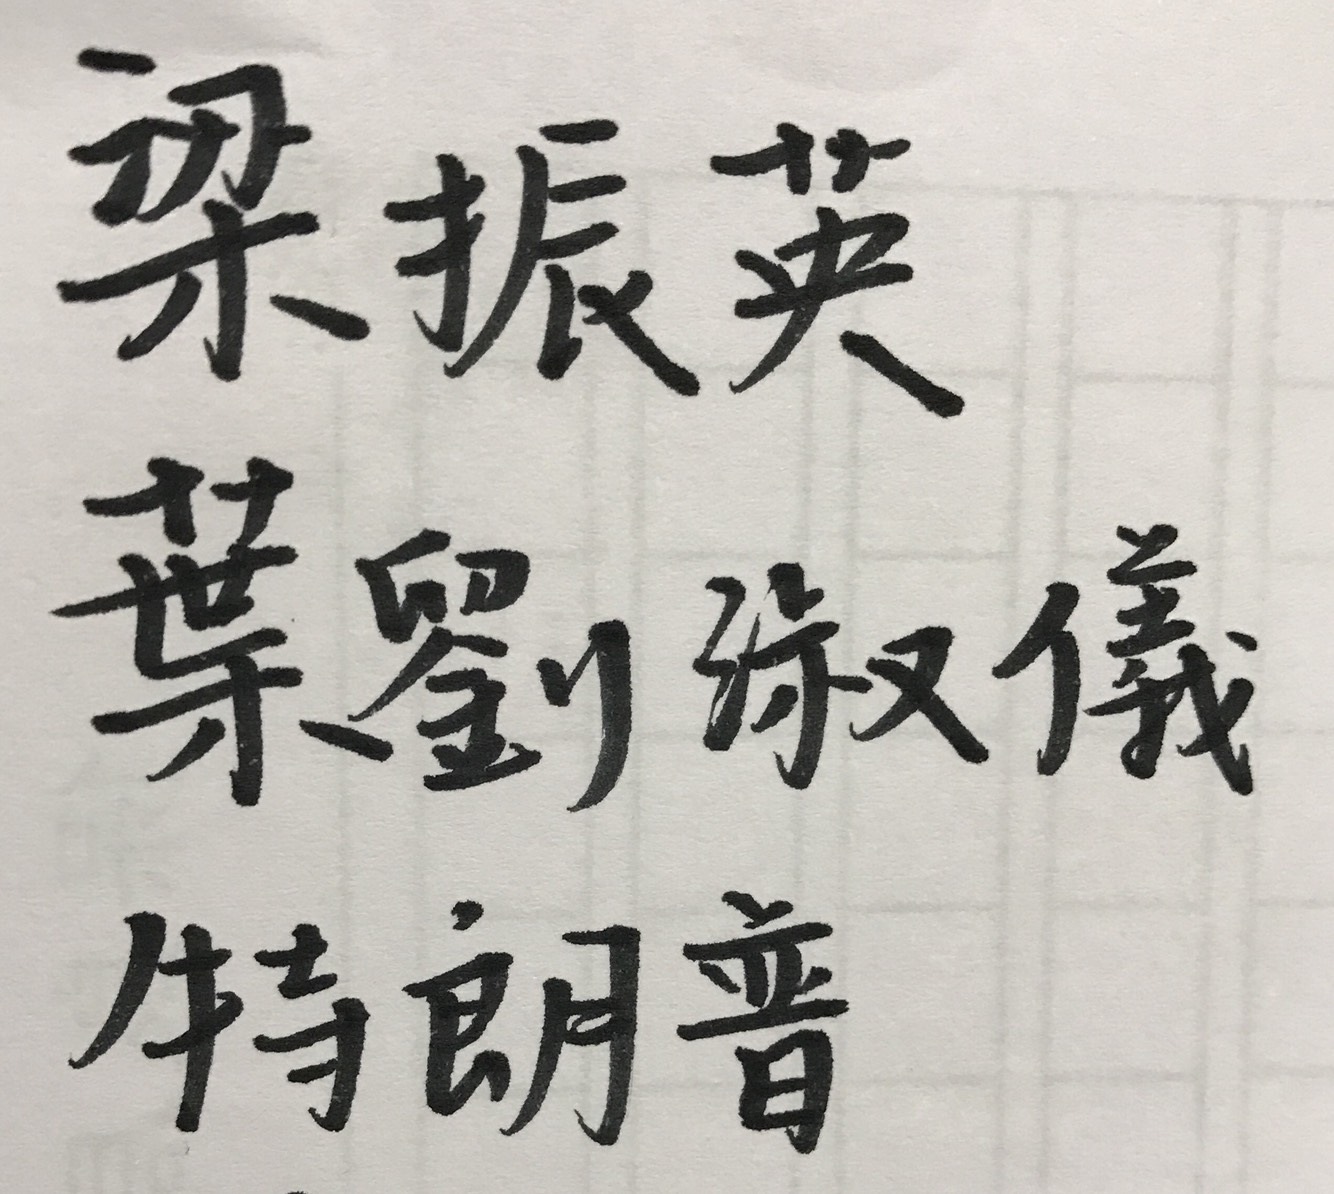 梁振英
葉劉淑儀
特朗普